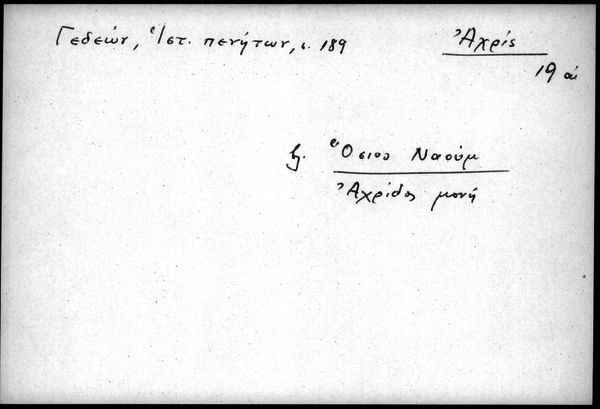 Γεδεών, Ἱστ. πενήτων, σ. 189
Ἀχρίς
19 αἰ
Ὁσίου Ναούμ
Ἀχρίδος μονή